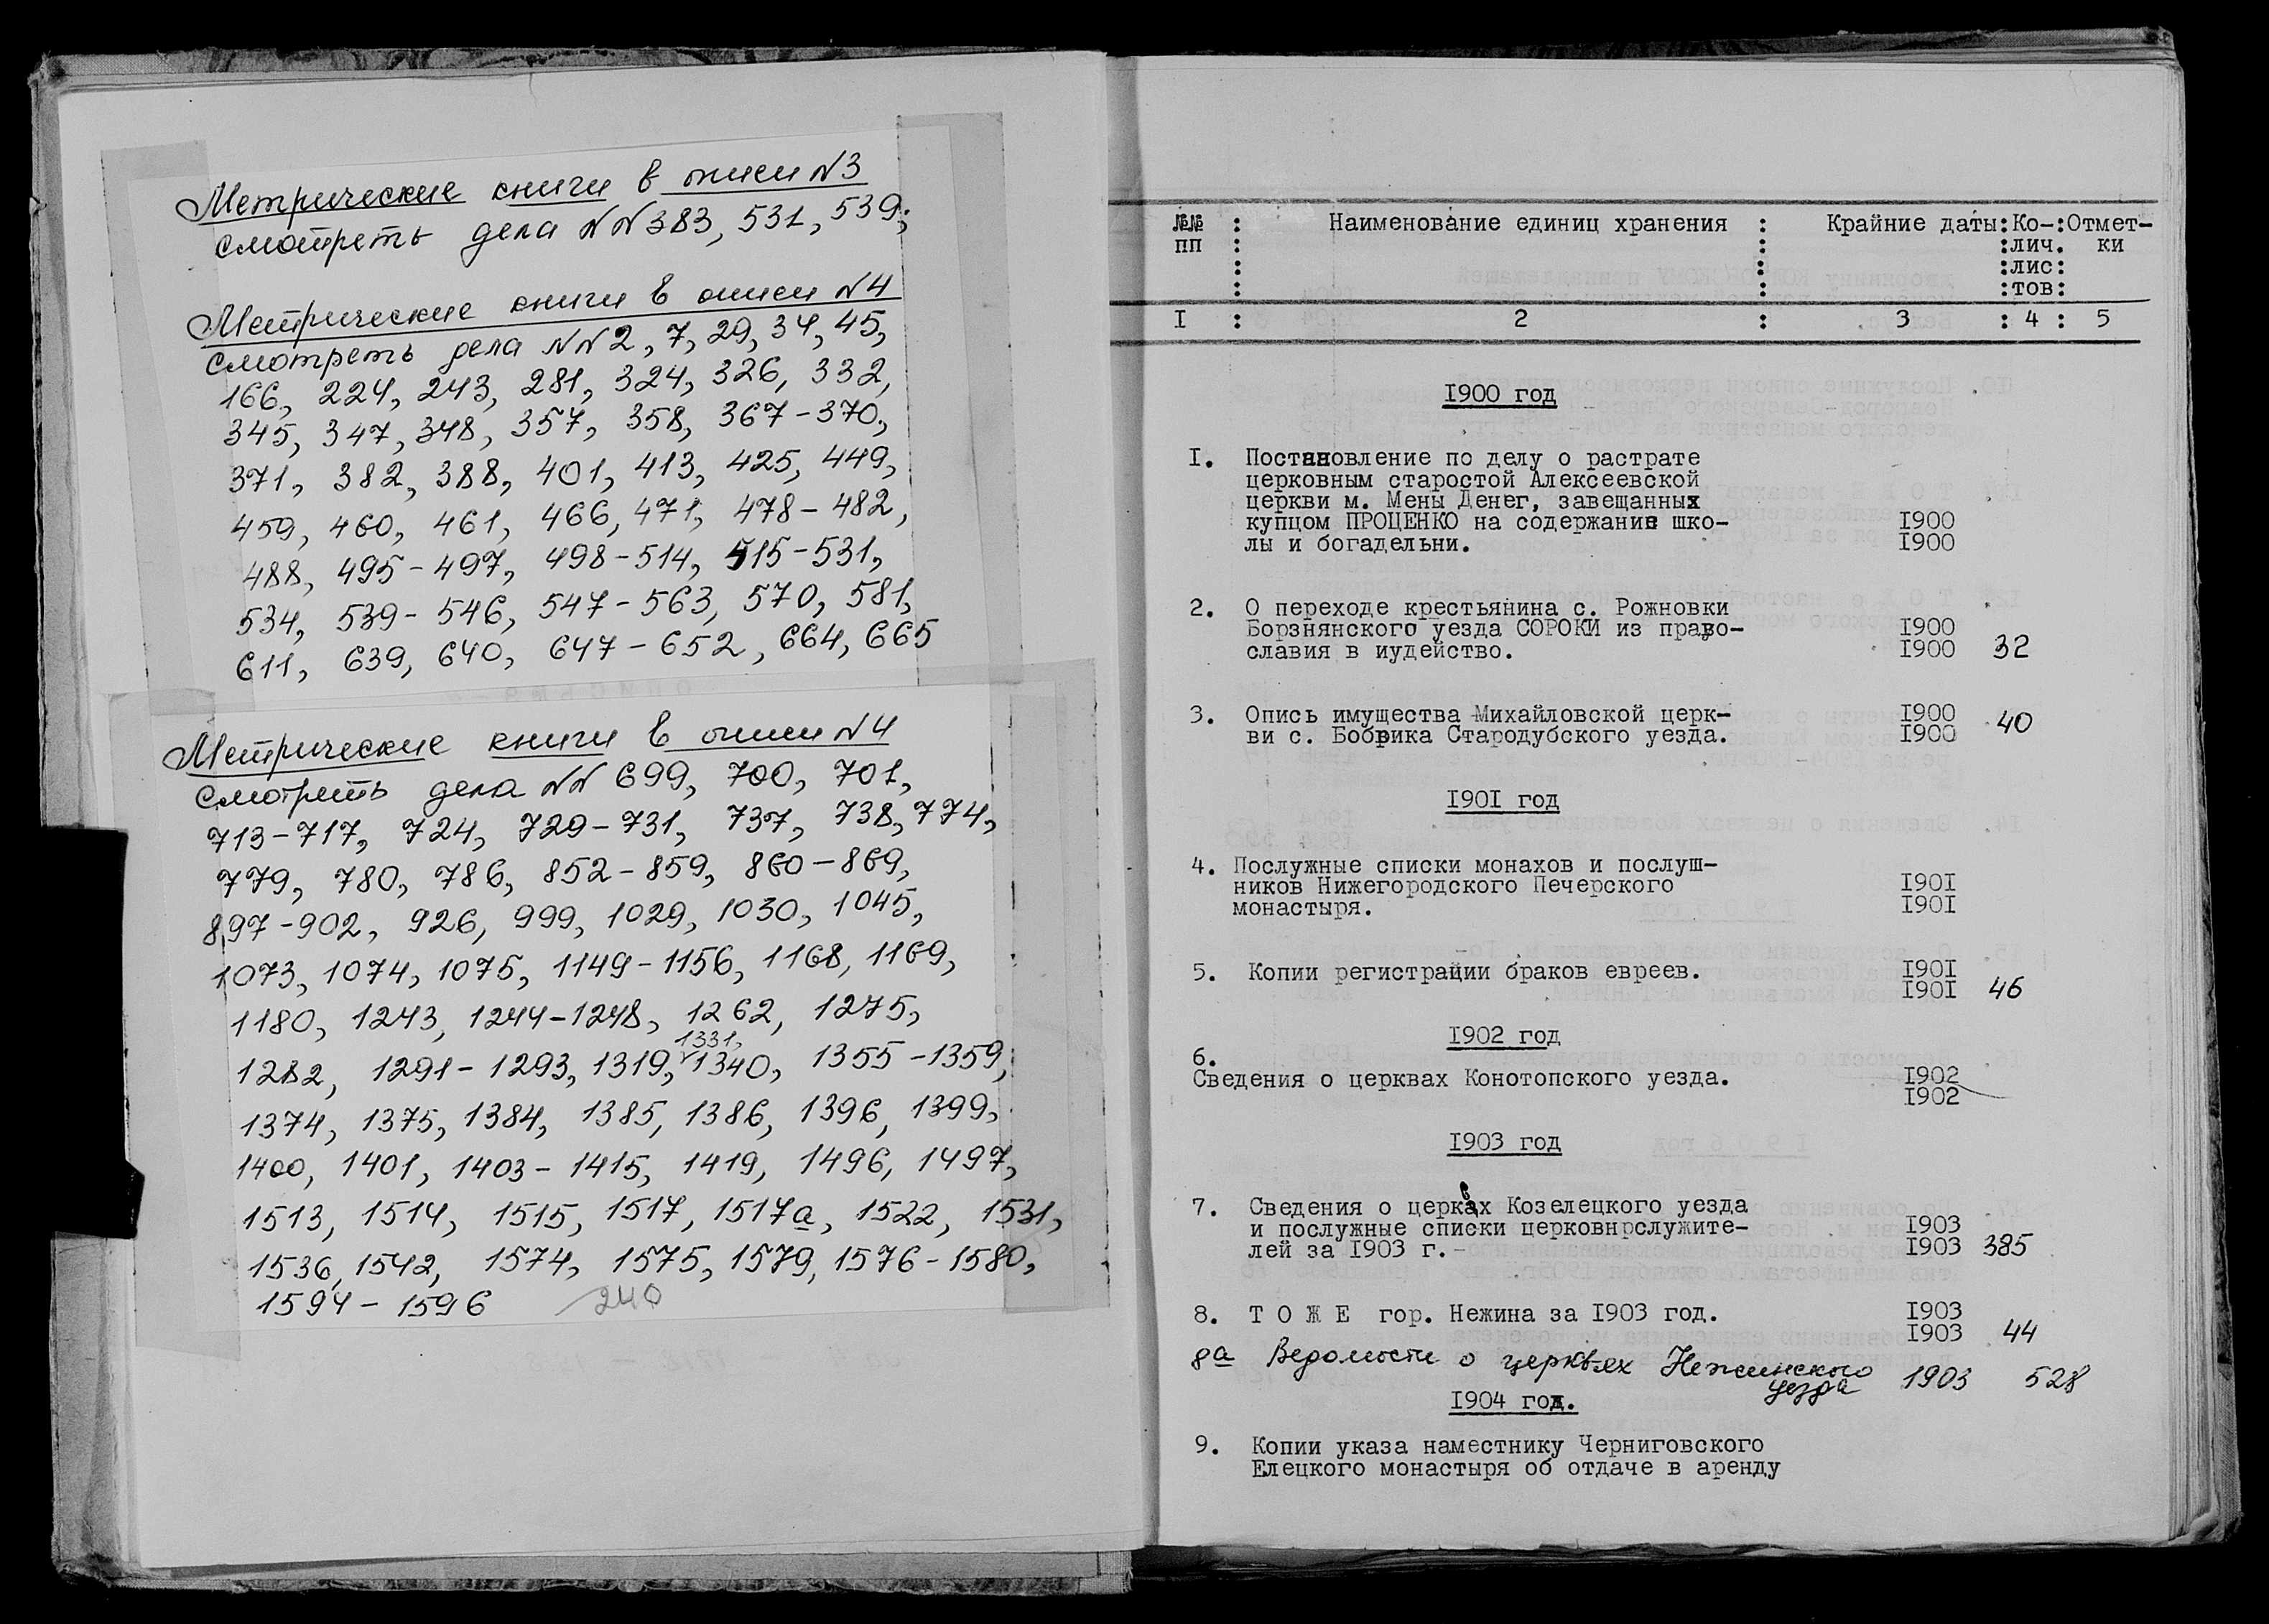 Метрические книги в описи N3
смотреть дела NN 383, 531, 539;
Метрические книги в описи N4
смотреть дела NN 2, 7, 29, 34, 45,
166, 224, 243, 281, 324, 326, 332,
345, 347, 348, 357, 358, 367-370,
371, 382, 388, 401, 413, 425, 449,
459, 460, 461, 466, 471, 478-482,
488, 495-497, 498-514, 515-531,
534, 539-546, 547-563, 570, 581,
611, 639, 640, 647-652, 664, 665
Метрические книги в описи N4
смотреть дела NN 699, 700, 701,
713-717, 724, 729-731, 737, 738, 774,
779, 780, 786, 852-859, 860-869,
897-902, 926, 999, 1029, 1030, 1045,
1073, 1074, 1075, 1149-1156, 1168, 1169,
1180, 1243, 1244-1248, 1262, 1275,
1331,
1282, 1291-1293, 1319, 1340, 1355-1359,
1374, 1375, 1384, 1385, 1386, 1396, 1399,
1400, 1401, 1403-1415, 1419, 1496, 1497,
1513, 1514, 1515, 1517, 1517а, 1522, 1531,
1536, 1542, 1574, 1575, 1579, 1576-1580,
1594-1596 240
№№ : Наименование единиц хранения : Крайние даты:Ко-:Отмет-
пп : : :лич. ки
: : :лис:
: : :тов:
I : 2 : 3 : 4 : 5
I900 год
I. Постановление по делу о растрате
церковным старостой Алексеевской
церкви м. Мены Денег, завещанных
купцом ПРОЦЕНКО на содержание шко- I900
лы и богадельни. I900
2. О переходе крестьянина с. Рожновки
Борзнянского уезда СОРОКИ из право- I900
славия в иудейство. I900 32
3. Опись имущества Михайловской церк- I900
ви с. Бобрика Стародубского уезда. I900 40
I90I год
4. Послужные списки монахов и послуш-
ников Нижегородского Печерского I90I
монастыря. I90I
5. Копии регистрации браков евреев. I90I
I90I 46
I902 год
6.
Сведения о церквах Конотопского уезда. I902
I902
I903 год
7. Сведения о церквах Козелецкого уезда
и послужные списки церковнрслужите- I903
лей за I903 г.- I903 385
8. Т О Ж Е гор. Нежина за I903 год. I903
I903 44
8а Ведомости о церквях Нежинского 1903 528
уезда
I904 год.
9. Копии указа наместнику Черниговского
Елецкого монастыря об отдаче в аренду